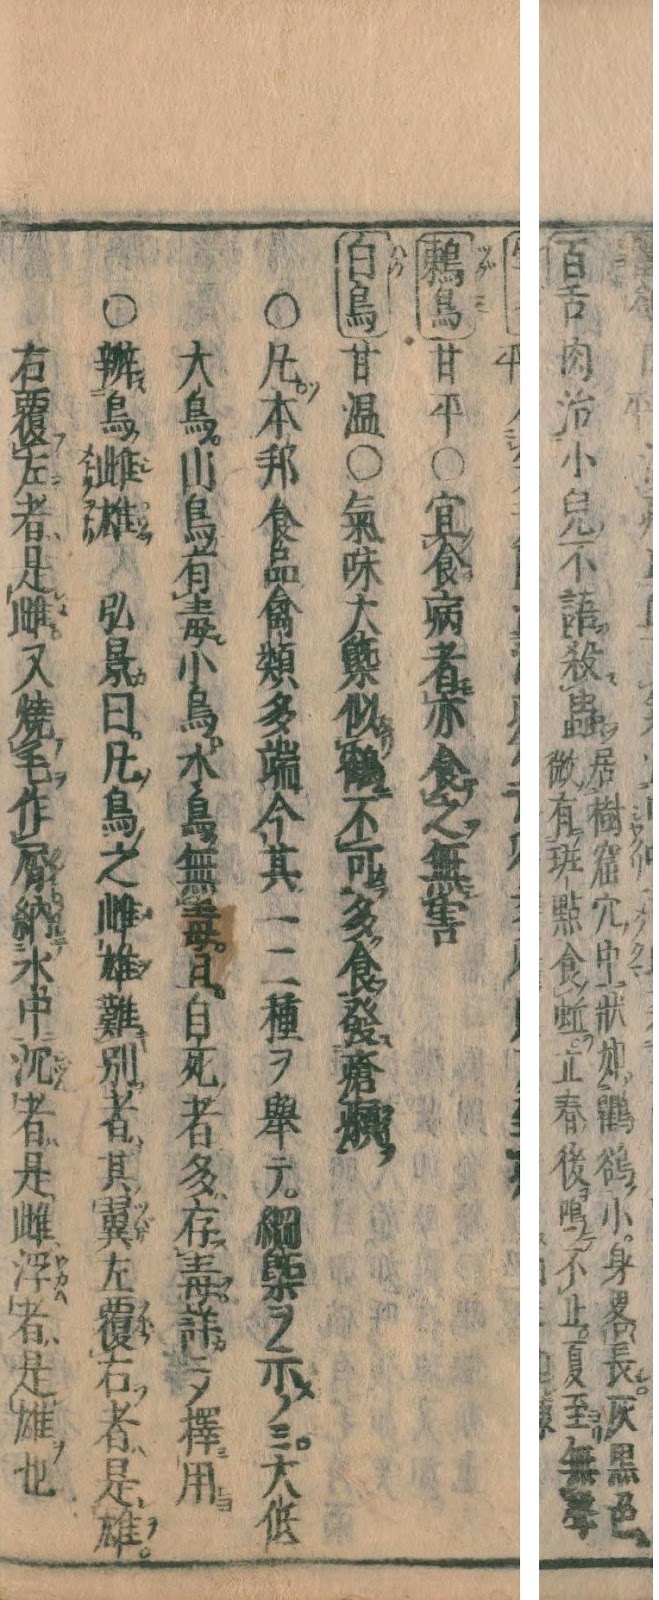 百舌肉治小兒不語殺蟲
居樹窟穴中狀如鸜鵒小身畧長灰黑色
微有斑點食蚯立春後鳴不止夏至無聲
鶫鳥 甘平〇宜食病者亦食之無害
白鳥 甘温〇氣味大槩似鶴不可多食發瘡癪
〇凡本邦食品禽類多端今其一二種ヲ舉テ綱槩ヲ示ノミ大低
大鳥山鳥有毒小鳥水鳥無毒且自死者多存毒詳ニノ擇用
〇辨鳥雌雄 弘景曰凡鳥之雌雄難別者其翼左覆右者是雄
右覆左者是雌又燒毛作屑納水中沉者是雌浮者是雄也